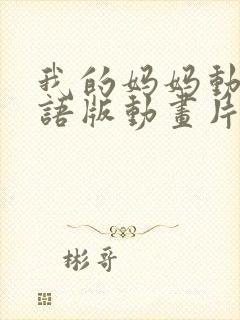 我的妈妈动
語版動畫片
彬哥